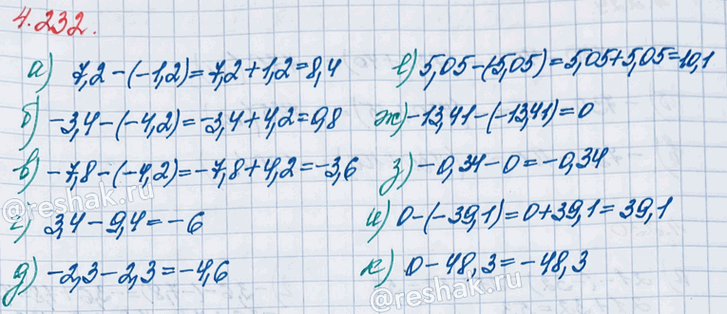 4.232.
а) 7,2-(-1,2)=7,2+1,2=8,4
б) -3,4-(-4,2)=-3,4+4,2=0,8
в) -7,8-(-4,2)=-7,8+4,2=-3,6
г) 3,4-9,4=-6
д) -2,3-2,3=-4,6
е) 5,05-(-5,05)=5,05+5,05=10,1
ж) -13,41-(-13,41)=0
з) -0,34-0=-0,34
и) 0-(-39,1)=0+39,1=39,1
к) 0-48,3=-48,3
@reshak.ru
@reshak.ru